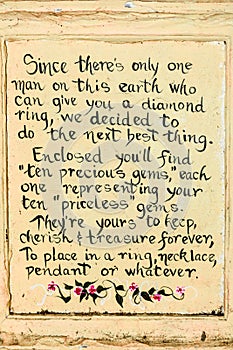 Since there's only one
man on this earth who
can give you a diamond
ring, we decided to
do the next best thing.
Enclosed you'll find
"ten precious gems," each
one representing your
ten "priceless" gems.
They're yours to keep,
cherish & treasure forever,
To place in a ring, necklace,
pendant or whatever.